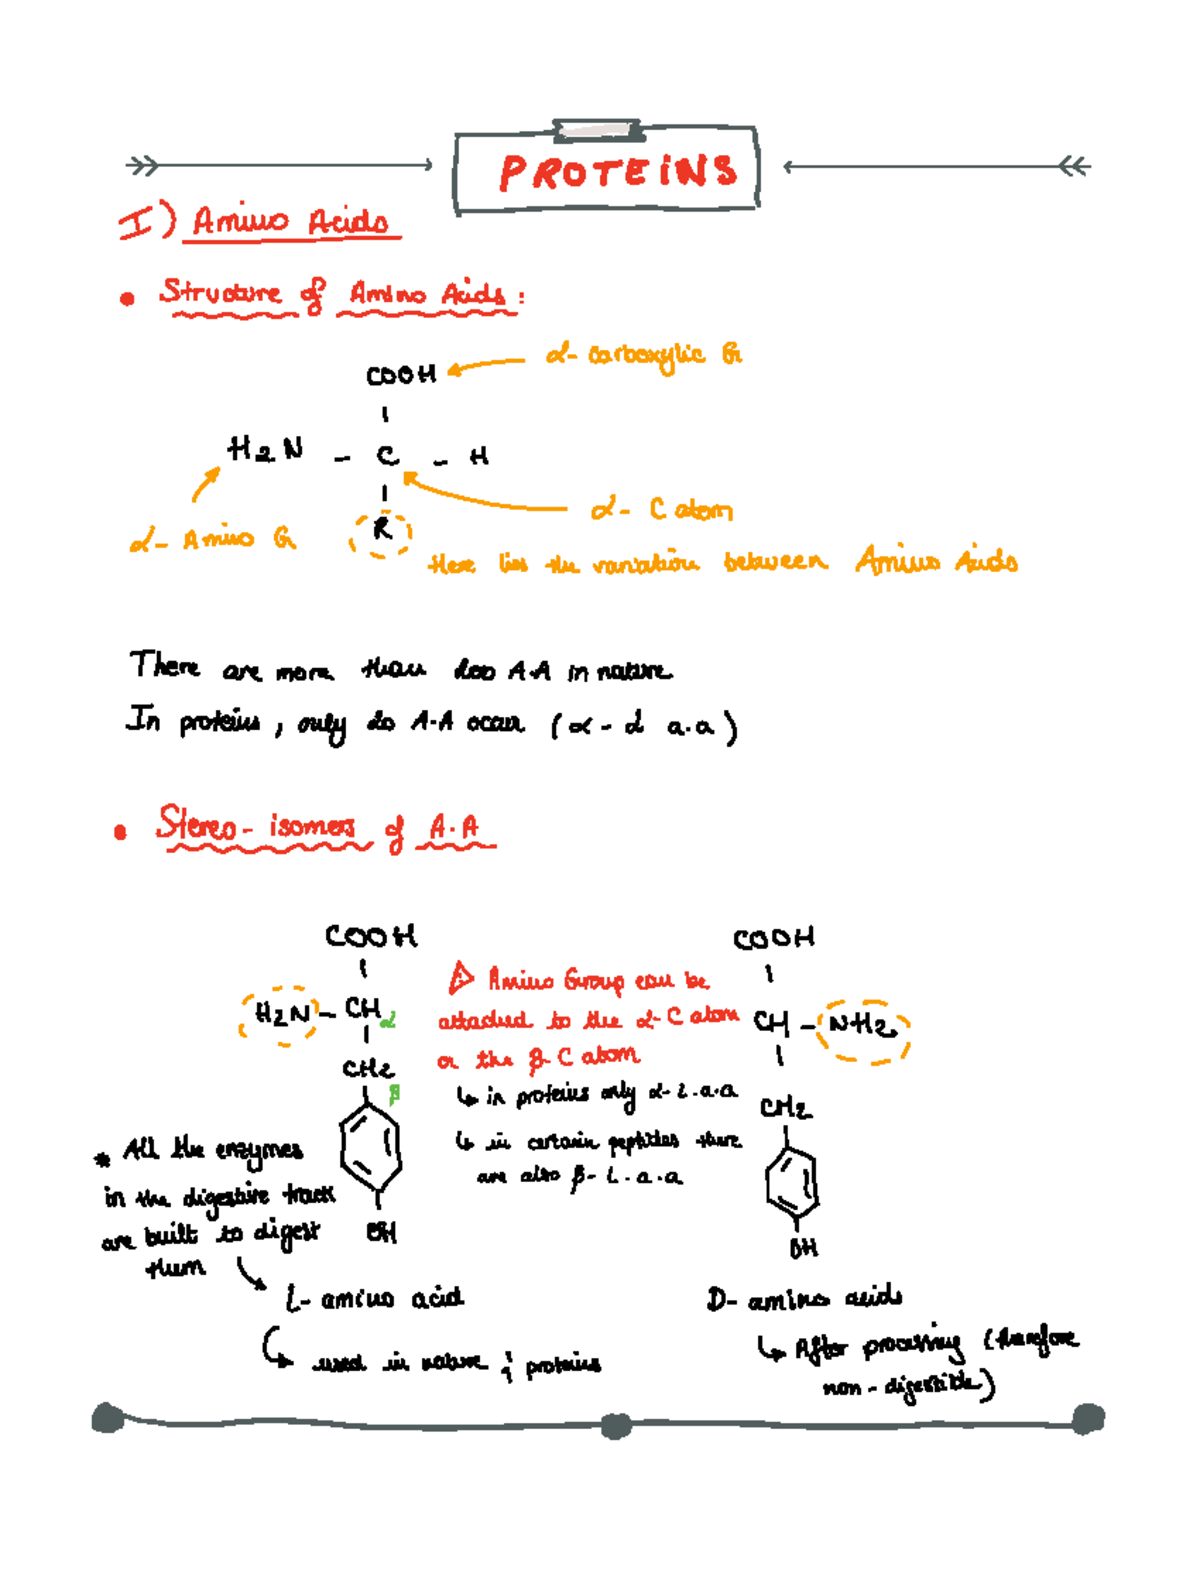 PROTEINS
I) Amino Acids
• Structure of Amino Acids:
α- carboxylic G
COOH
H2N - C - H
R
α- C atom
α- Amino G
Here lies the variation between Amino Acids
There are more than 200 A.A in nature
In proteins, only 20 A.A occur (α - L a.a)
• Stereo-isomers of A.A
COOH
H2N - CH α
CH2
β
OH
Amino Group can be
attached to the α-C atom
or the β-C atom
↳ in proteins only α-L.a.a
↳ in certain peptides there
are also β-L.a.a
COOH
CH - NH2
CH2
OH
* All the enzymes
in the digestive track
are built to digest
them
L- amino acid
used in nature ; proteins
D- amino acids
↳ After processing (therefore
non-digestible)